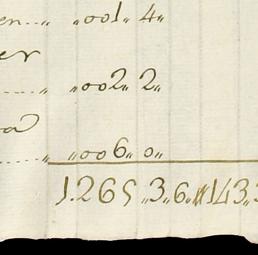 en...„ „001„ 4„
er
....„ „002„ 2„
a
......„ „006„ 0„
1.265„3„6„143„